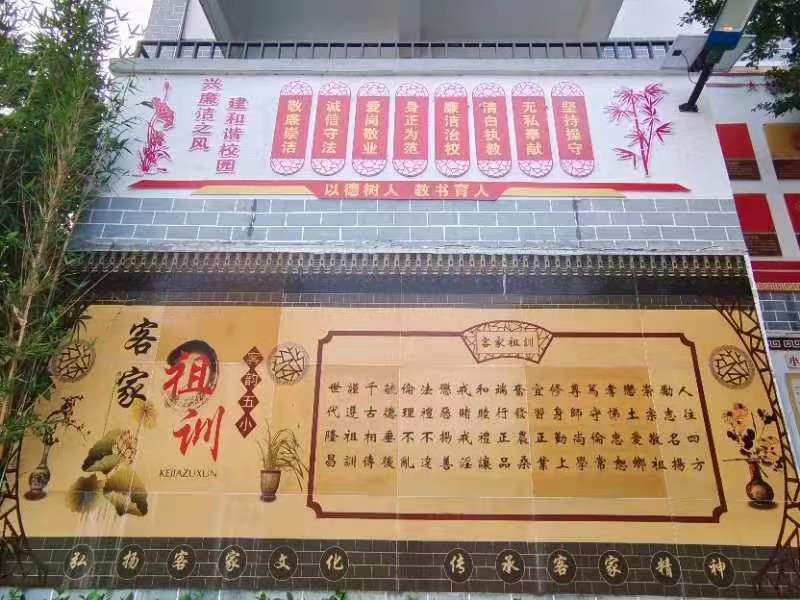 兴廉洁之风
建和谐校园
敬廉崇洁
诚信守法
爱岗敬业
身正为范
廉洁治校
清白执教
无私奉献
坚持操守
以德树人 教书育人
客家
祖训
KEJIAZUXUN
韵五小
客家祖训
人往四方
勤志名揚
崇宗敬祖
戀土愛鄉
孝悌忠恕
篤守倫常
尊師尚學
修身勤上
宜習正業
奮發農桑
端行正品
和睦禮讓
戒賭戒淫
懲惡揚善
法禮不違
倫理不亂
毓德垂後
千古相傳
謹遵祖訓
世代隆昌
弘扬客家文化 传承客家精神